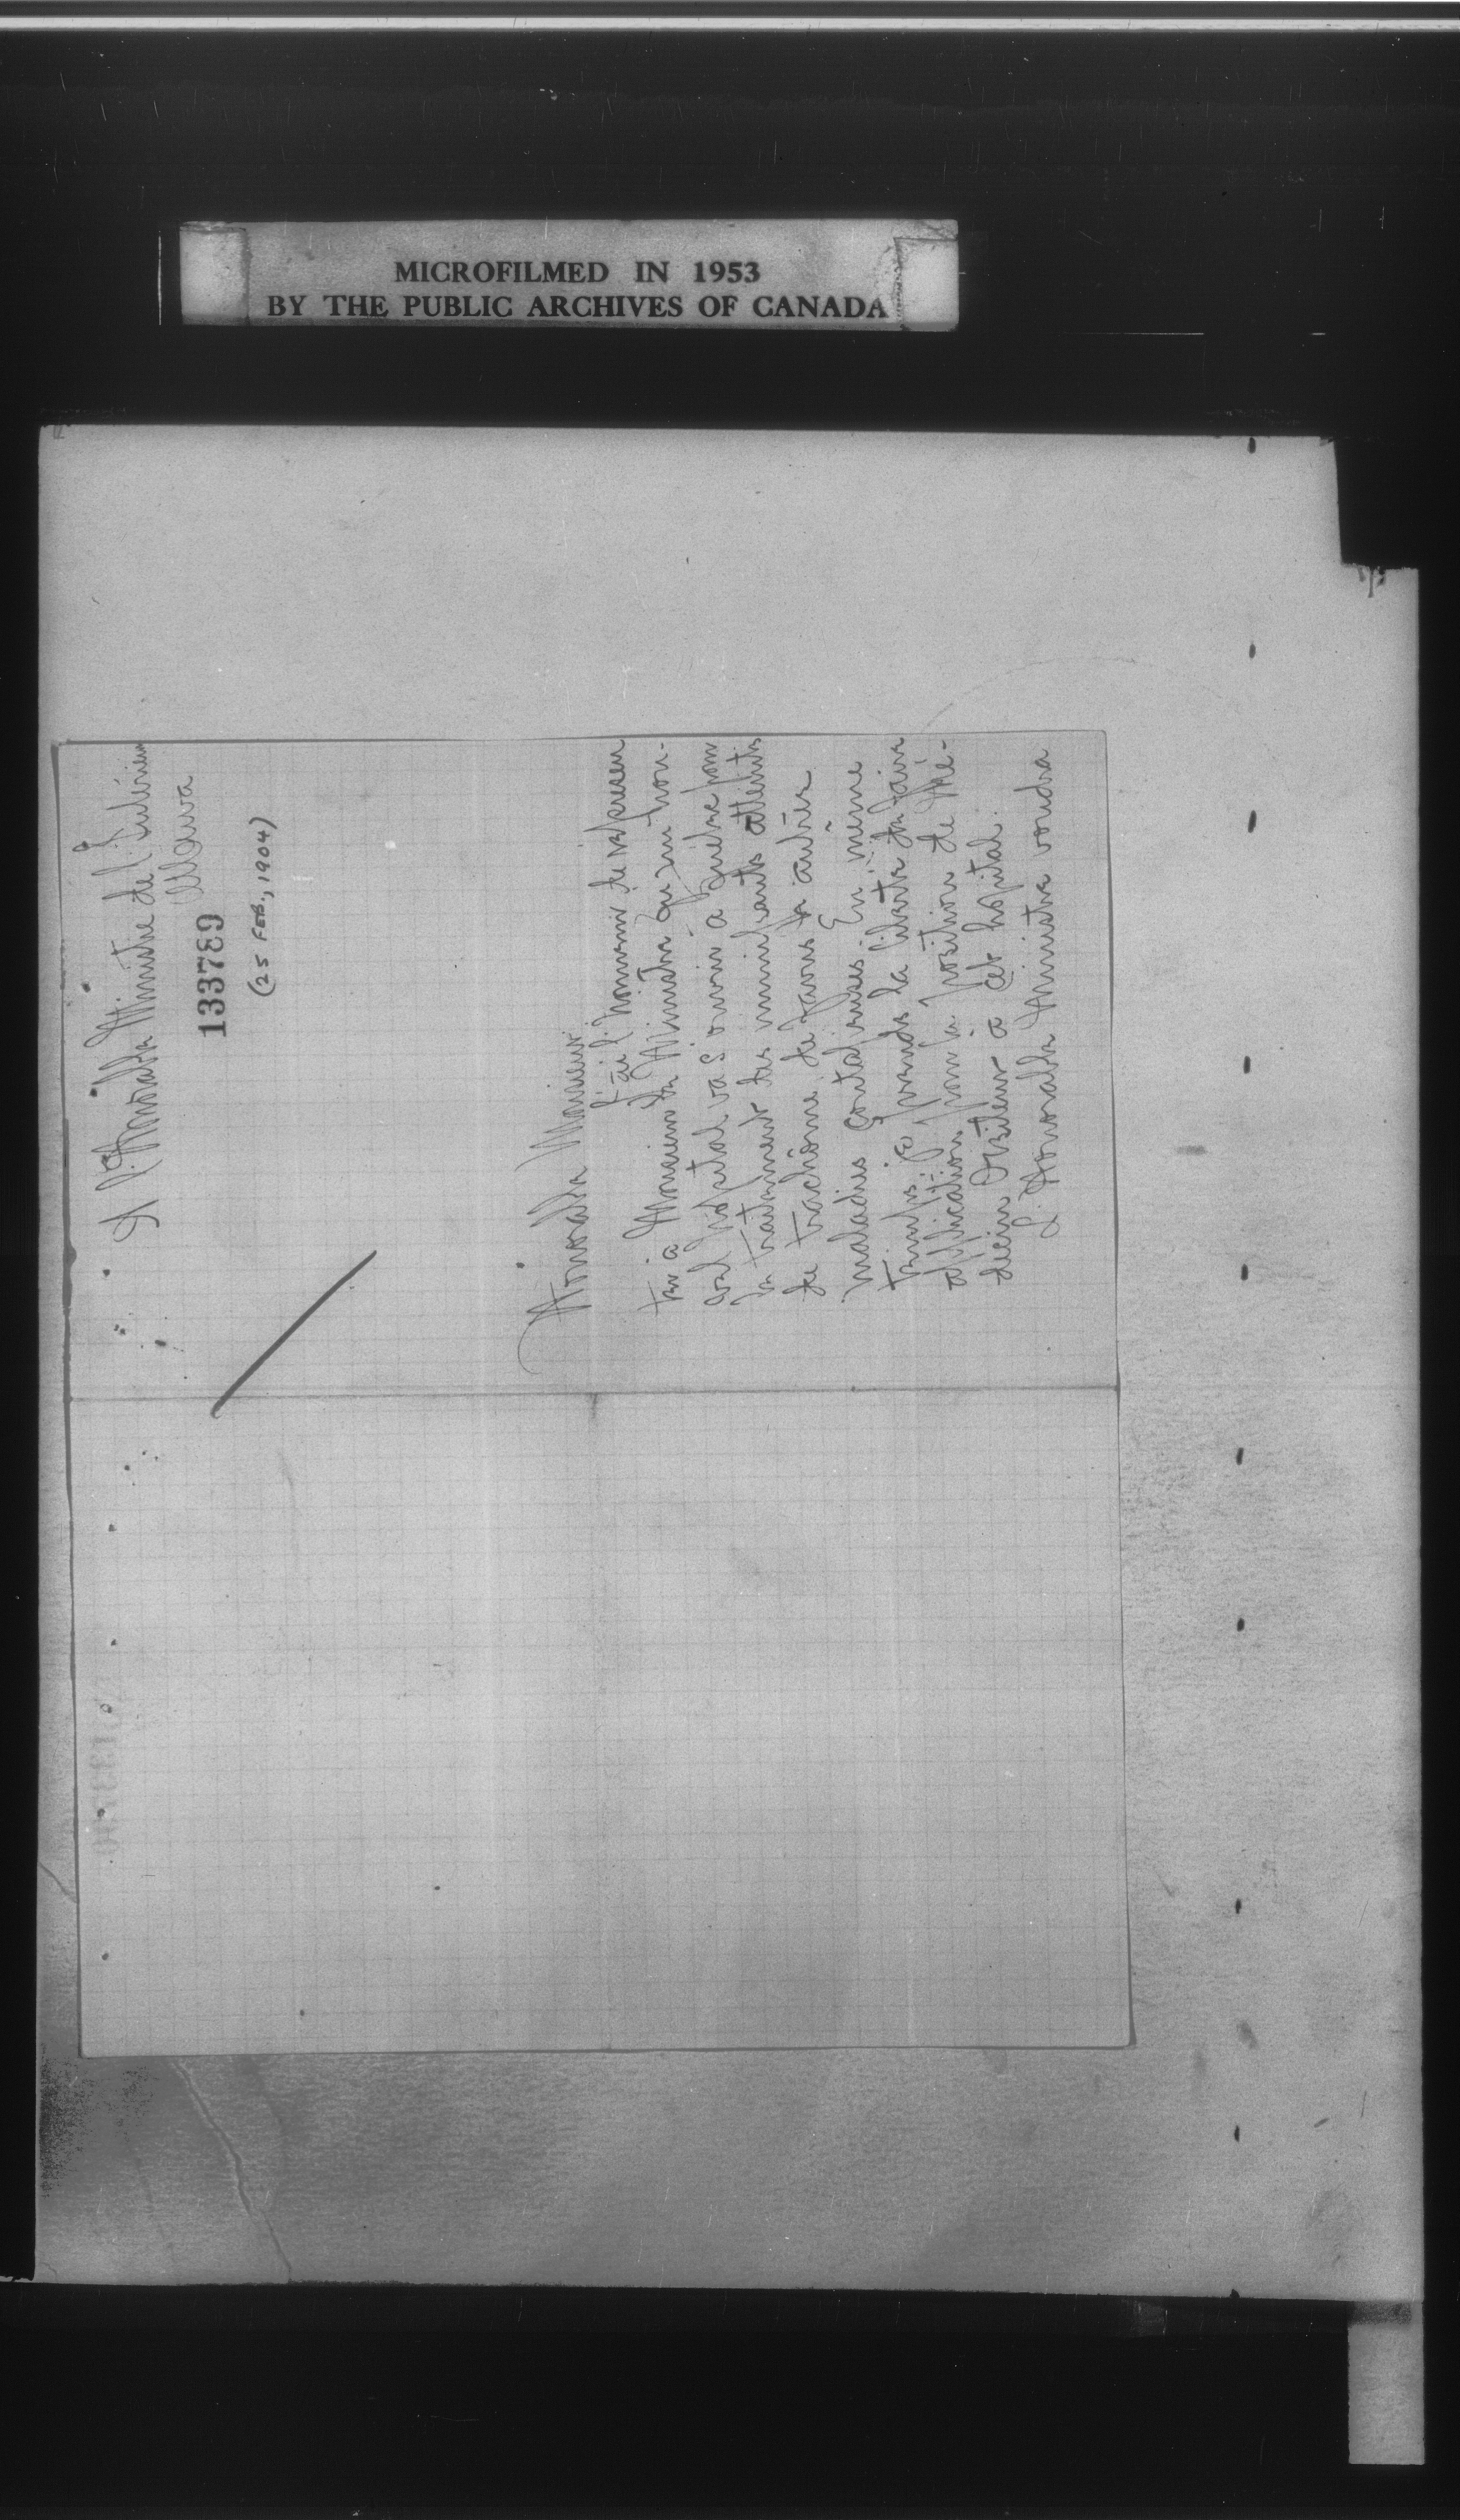 MICROFILMED IN 1953
BY THE PUBLIC ARCHIVES OF CANADA
A l'Honorable Ministre de l'Intérieur
Ottawa
133789
(25 FEB., 1904)
Honorable Monsieur
J'ai l'honneur de représen
ter à Monsieur le Ministre qu'un nou-
vel hopital va s'ouvrir a Quebec pour
le traitement des immigrants atteints
de trachôme, de favus & autres
maladies contagieuses. En même
temps je prends la liberté de faire
application pour la position de Mé-
decin Visiteur à cet hopital.
L'Honorable Ministre voudra